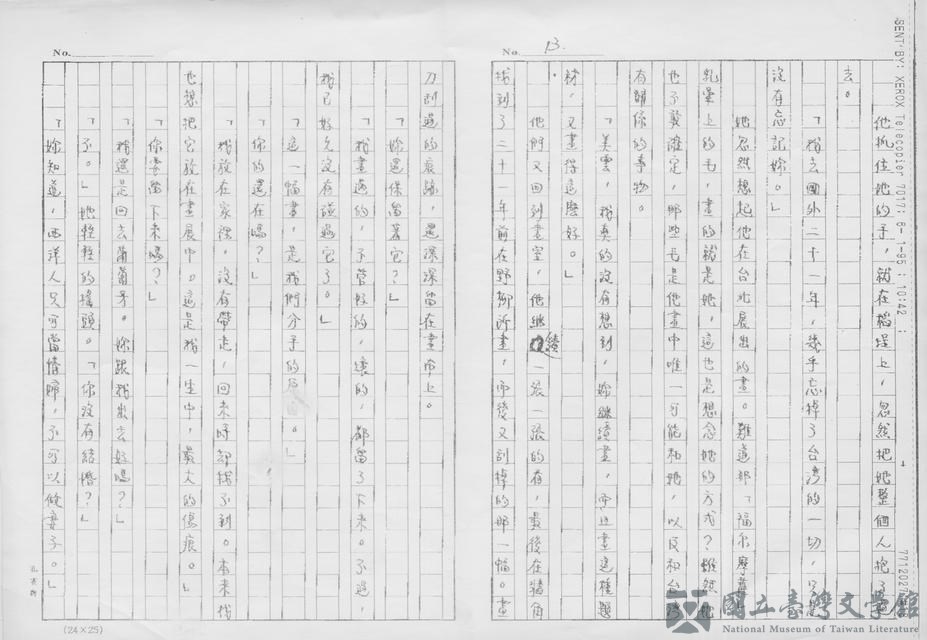 SENT BY: XEROX Telecopier 7017; 6- 1-95 ; 10:42 ;
No. 13.
他抓住她的手，就在稻埕上，忽然把她整個人抱了
去。
「我去國外二十一年，幾乎忘掉了台湾的一切，只
沒有忘記妳。」
她忽然想起他在台北展出的畫。難道那「福尔摩薩
乳暈上的毛，畫的就是她，這也是想念她的方式？雖然她
也不敢確定，那些毛是他畫中唯一可能和她，以及和台湾
有關係的事物。
「美雲，我真的沒有想到，妳繼續畫，而且畫這種題
材，又畫得這麼好。」
他們又回到畫室，他継續一張一張的看，最後在牆角
找到了二十一年前在野柳所畫，而後又刮掉的那一幅。畫
No.
刀刮過的痕跡，還深深留在畫布上。
「妳還保留著它？」
「我畫過的，不管好的，壞的，都留了下來。不過，
我已好久沒有碰過它了。」
「這一幅畫，是我們分手的原因。」
「你的還在嗎？」
「我放在家裡，沒有帶走，回來時却找不到。本來我
也想把它放在畫展中。這是我一生中，最大的傷痕。」
「你要留下來嗎？」
「我還是回去葡萄牙。妳跟我出去好嗎？」
「不。」她輕輕的搖頭。「你沒有結婚？」
「妳知道，西洋人只可當情婦，不可以做妻子。」
(24×25)
國立臺灣文學館
National Museum of Taiwan Literature